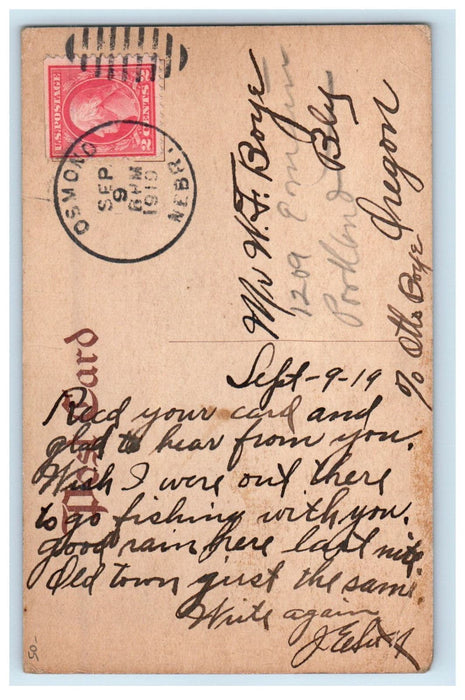 U.S. POSTAGE
2 CENTS 2
OSMOND
SEP
9
6 PM
1919
NEBR.
Mr W. F. Boye
Bly
Oregon
c/o Otto Boye
1209
Portland
Post Card
Sept-9-19
Recd your card and
glad to hear from you.
Wish I were out there
to go fishing with you.
good rain here last nite
Old town just the same.
Write again
50-